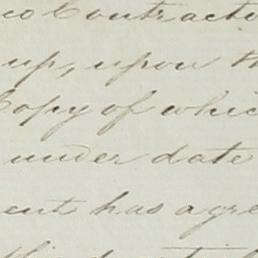 co Contracto
up, upon th
Copy of whic
under date
ent has agre